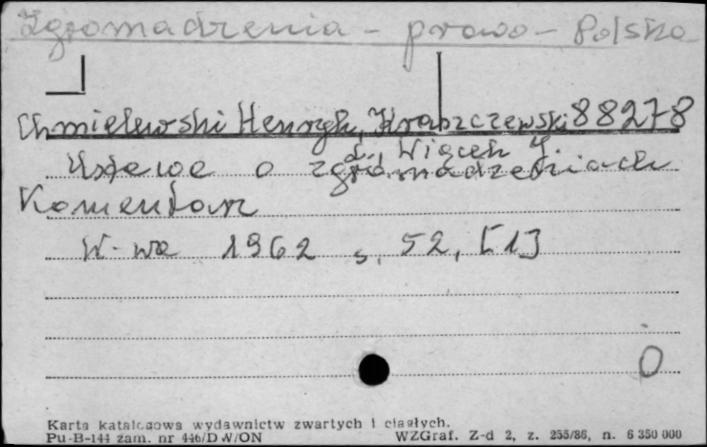 Zgromadzenia - prawo - Polska
Chmielewski Henryk, Krabczewski 88278
L., Więcek J.
Ustawa o zgromadzeniach
Komentarz
W-wa 1962 s. 52, [1]
0
Karta katalogowa wydawnictw zwartych i ciągłych.
Pu-B-144 zam. nr 446/DW/ON WZGraf. Z-d 2, z. 255/86, n. 6 350 000